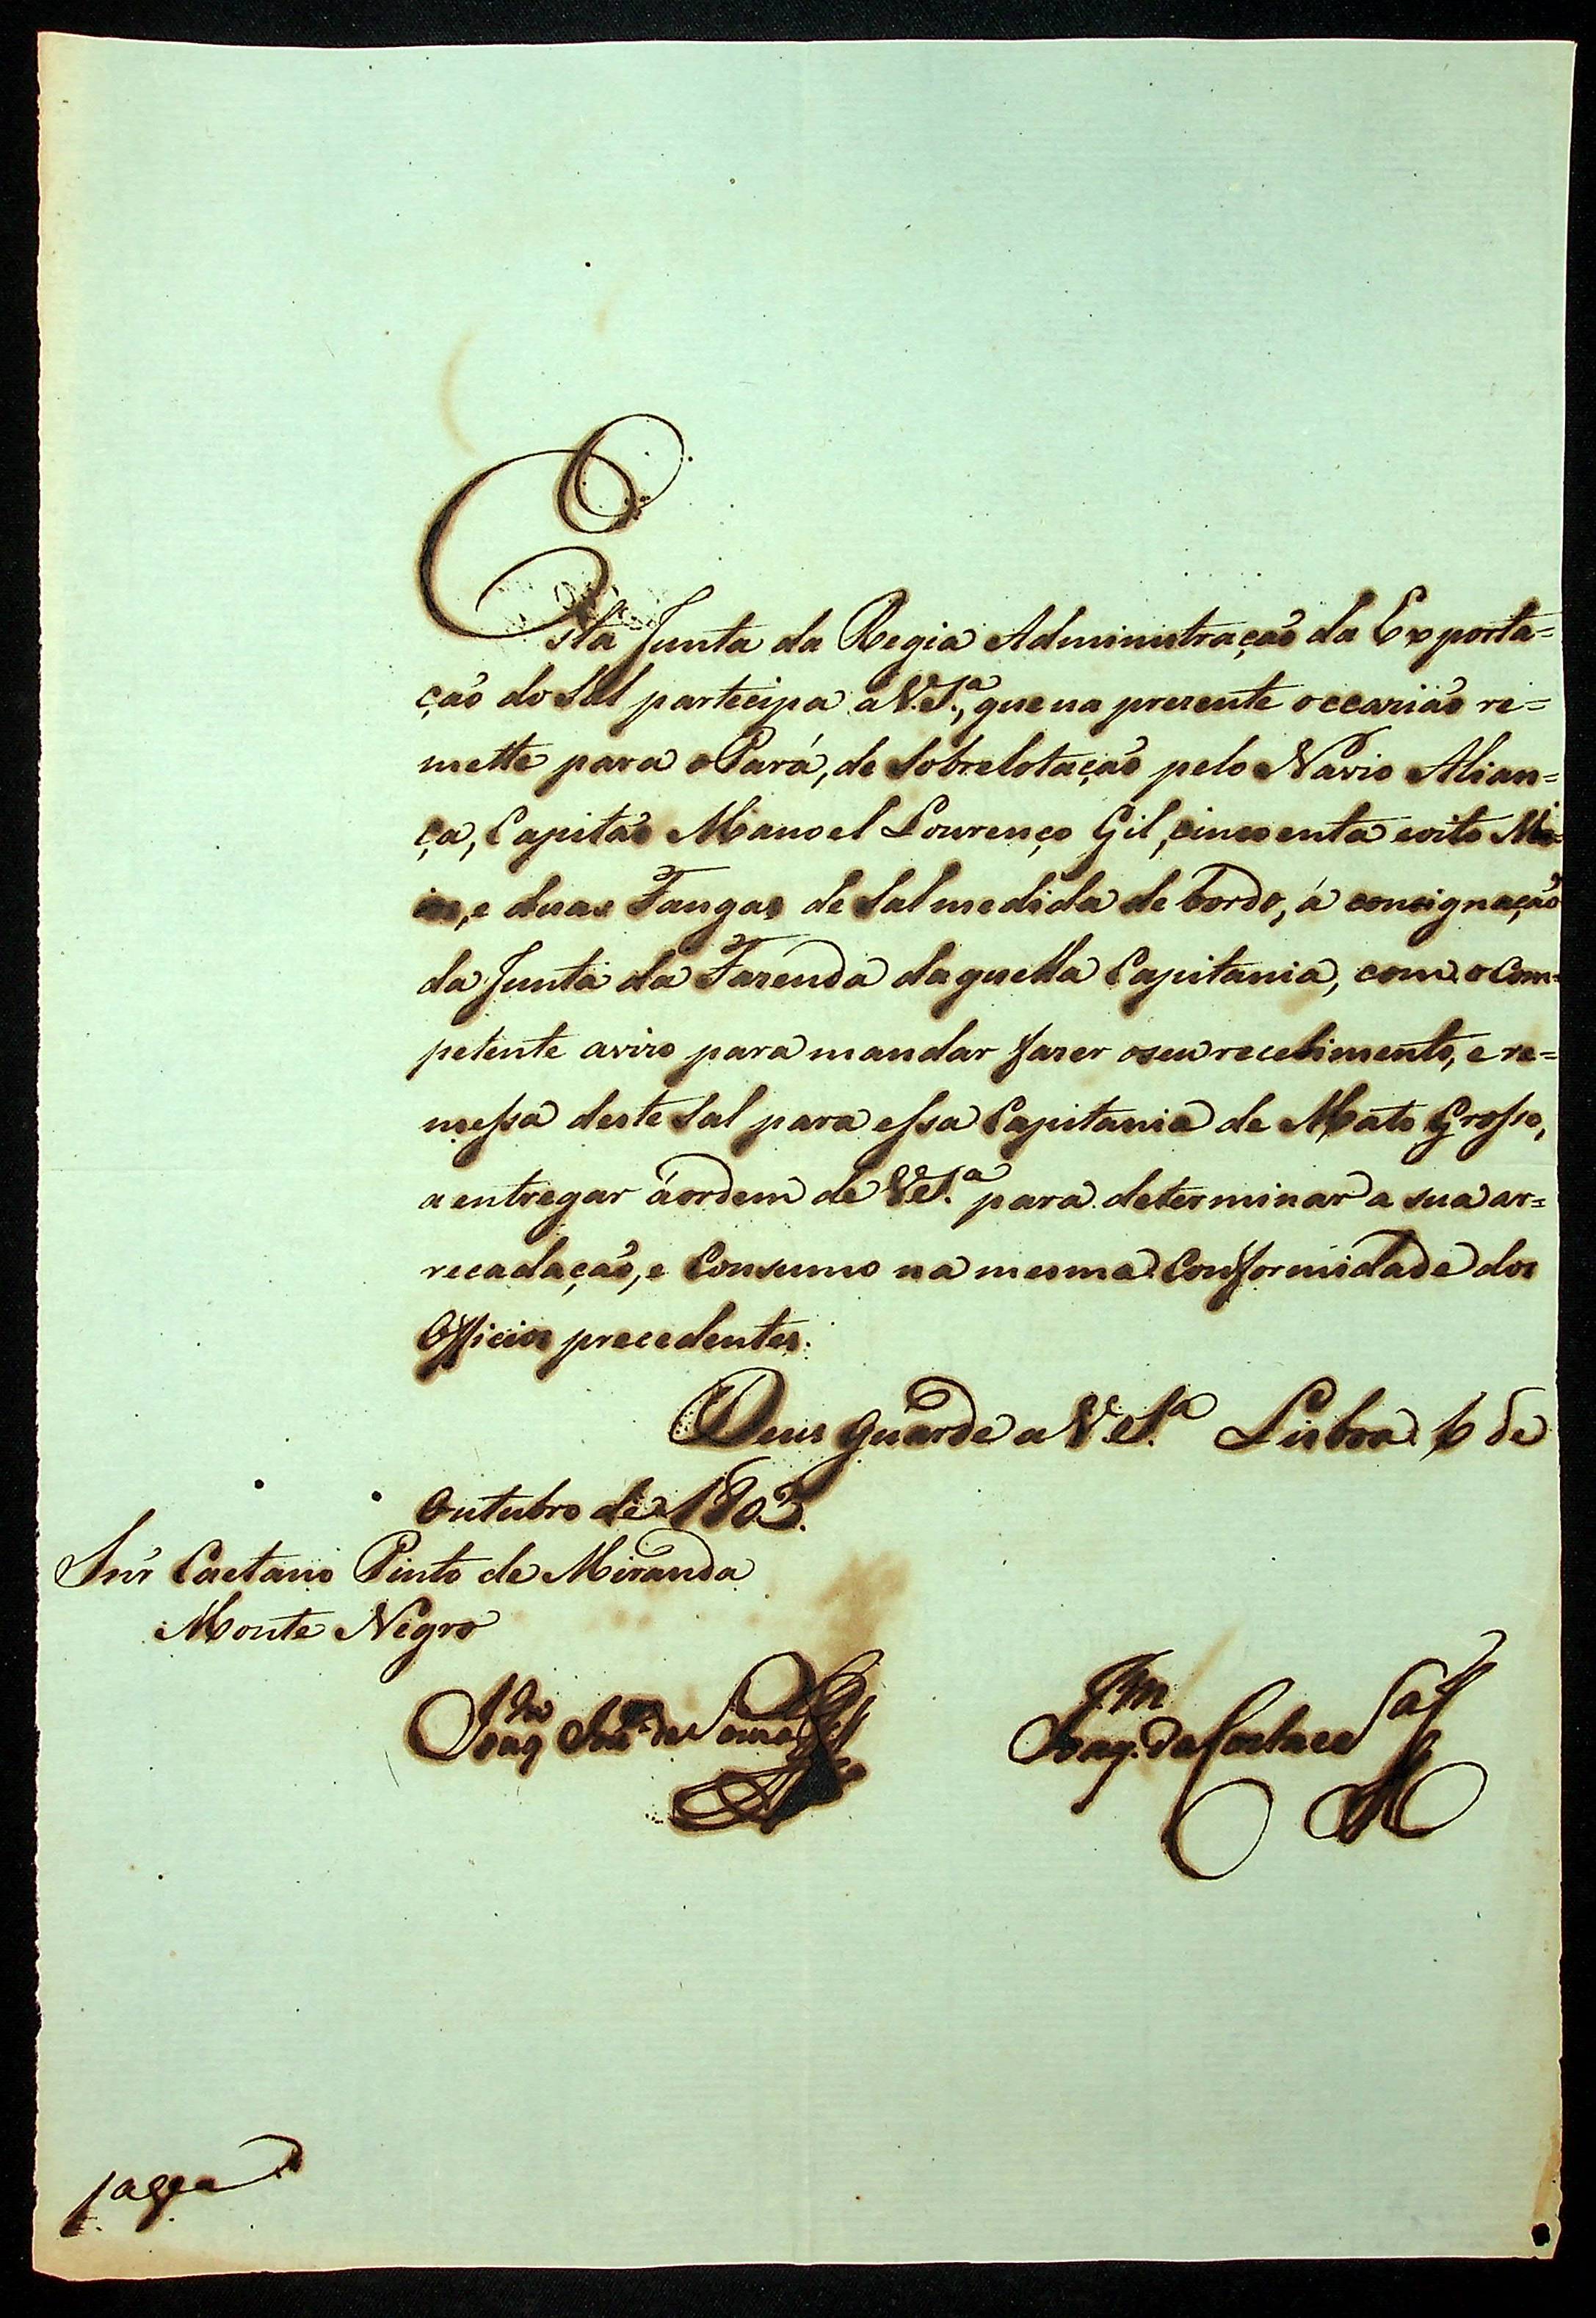 Esta Junta da Regia Administração da Exporta=
ção do Sal partecipa a V. S.ª, que na presente occasião re=
mette para o Pará, de Sobrelotação pelo Navio Alian=
ça, Capitão Manoel Lourenço Gil, cincoenta e oito Mo=
ios, e duas Fangas de Sal medida de bordo, á consignação
da Junta da Fazenda daquella Capitania, com o Com=
petente avizo para mandar fazer o seu recebimento, e re=
messa deste Sal para essa Capitania de Mato Grosso,
a entregar á ordem de V. S.ª para determinar a sua ar=
recadação, e Consumo na mesma Conformidade dos
Officios precedentes.
Deus guarde a V. S.ª Lisboa 6 de
Outubro de 1803.
Snr̃ Caetano Pinto de Miranda
Monte Negro
Joaq de
Joaq. da Costa e